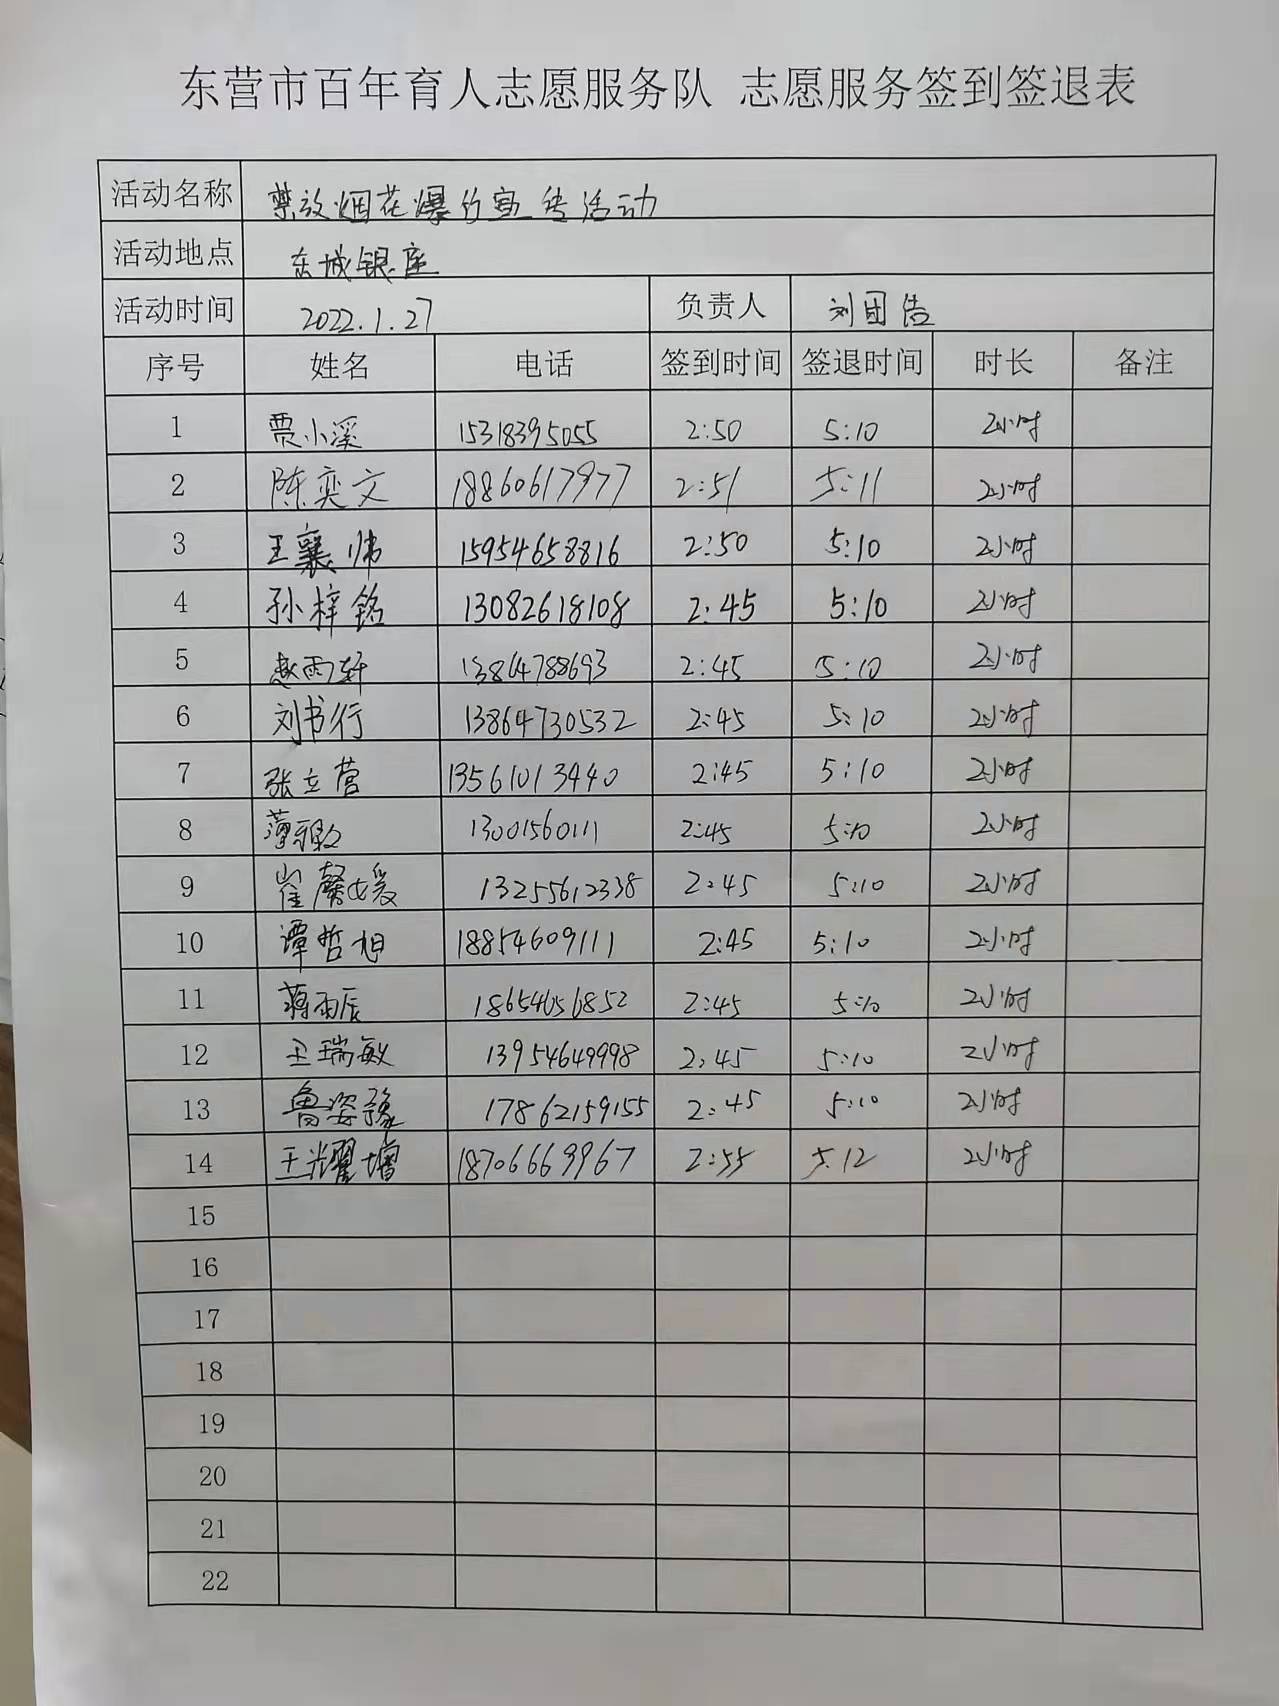 东营市百年育人志愿服务队 志愿服务签到签退表
活动名称 禁放烟花爆竹宣传活动
活动地点 东城银座
活动时间 2022.1.27 负责人 刘团浩
序号 姓名 电话 签到时间 签退时间 时长 备注
1 贾小溪 15318395055 2:50 5:10 2小时
2 陈奕文 18860617977 2:51 5:11 2小时
3 王襄帅 15954658816 2:50 5:10 2小时
4 孙梓铭 13082618108 2:45 5:10 2小时
5 赵雨轩 13864788693 2:45 5:10 2小时
6 刘书行 13864730532 2:45 5:10 2小时
7 张立营 13561013440 2:45 5:10 2小时
8 13001560111 2:45 5:10 2小时
9 崔馨媛 13255612338 2:45 5:10 2小时
10 谭哲旭 18854609111 2:45 5:10 2小时
11 蒋雨辰 18654656852 2:45 5:10 2小时
12 王瑞敏 13954649998 2:45 5:10 2小时
13 鲁姿豫 17862159155 2:45 5:10 2小时
14 王耀增 18706669967 2:55 5.12 2小时
15
16
17
18
19
20
21
22